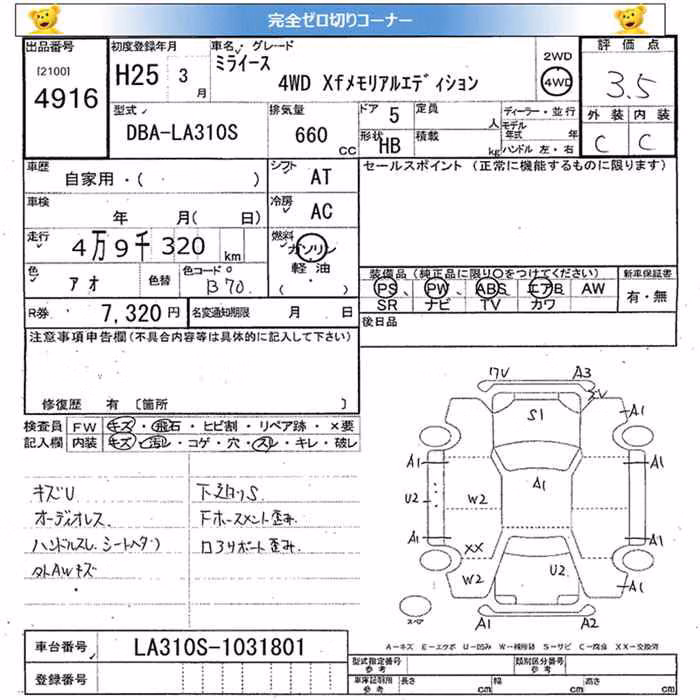 完全ゼロ切りコーナー
出品番号 初度登録年月 車名 グレード 2WD 評価点
[2100] H25 3月 ミライース 4WD Xfメモリアルエディション 4WD 3.5
4916
型式 排気量 ドア 5 定員 人 ディーラー・並行 外装 内装
DBA-LA310S 660 CC 形状 HB 積載 kg モデル年式 年 C C
ハンドル 左・右
車歴 シフト セールスポイント (正常に機能するものに限ります)
自家用・( ) AT
車検 年 月( 日) 冷房 AC
走行 4万9千320 km 燃料 ガソリン
色 アオ 色替 色コード B70. 軽油 ( )
装備品 (純正品に限り○をつけてください) 新車保証書
PS、 PW、 ABS エアB AW 有・無
SR ナビ TV カワ
R券 7,320円 名変通知期限 月 日 後日品
注意事項申告欄(不具合内容等は具体的に記入して下さい)
修復歴 有 〔箇所 〕
検査員 FW キズ・飛石・ヒビ割・リペア跡・×要
記入欄 内装 キズ・汚レ・コゲ・穴・スレ・キレ・破レ
キズU 下廻りS
オーディオレス Fホースメント歪み
ハンドルスレ シートヘタリ ロアサポート歪み.
外AWキズ
7V A3
S1 A1
A1 A1
U2 W2 A1
A1 A1
XX
W2 U2 A1
スペア A1 A2
A-キズ E-エクボ U-凹み W-補修跡 S-サビ C-腐食 XX-交換済
車台番号 LA310S-1031801
登録番号
型式指定番号 参考 類別区分番号 参考
車庫証明用 参考 長さ cm 幅 cm 高さ cm